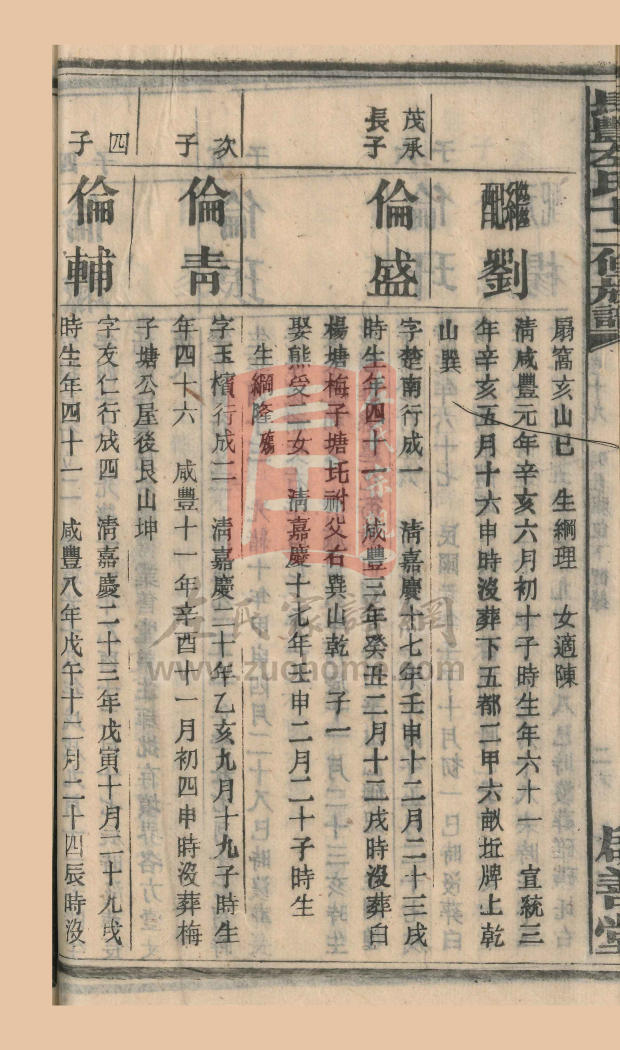 長豐左氏十二修族譜
扇窩亥山巳　生綱理　女適陳
繼配劉
清咸豐元年辛亥六月初十子時生年六十一　宣統三
年辛亥五月十六申時沒葬下五都二甲六畝坵牌上乾
山巽
茂承長子
倫盛
字楚南行成一　清嘉慶十七年壬申十二月二十三戌
時生年四十一　咸豐三年癸丑二月十二戌時沒葬白
楊塘梅子塘圫祔父右巽山乾　子一
娶熊受二女　清嘉慶十七年壬申二月二十子時生
生綱隆
次子
倫青
字玉檳行成二　清嘉慶二十年乙亥九月十九子時生
年四十六　咸豐十一年辛酉十一月初四申時沒葬梅
子塘公屋後艮山坤
四子
倫輔
字友仁行成四　清嘉慶二十三年戊寅十月二十九戌
時生年四十一　咸豐八年戊午十二月二十四辰時沒
左氏家譜網
www.zuchome.com